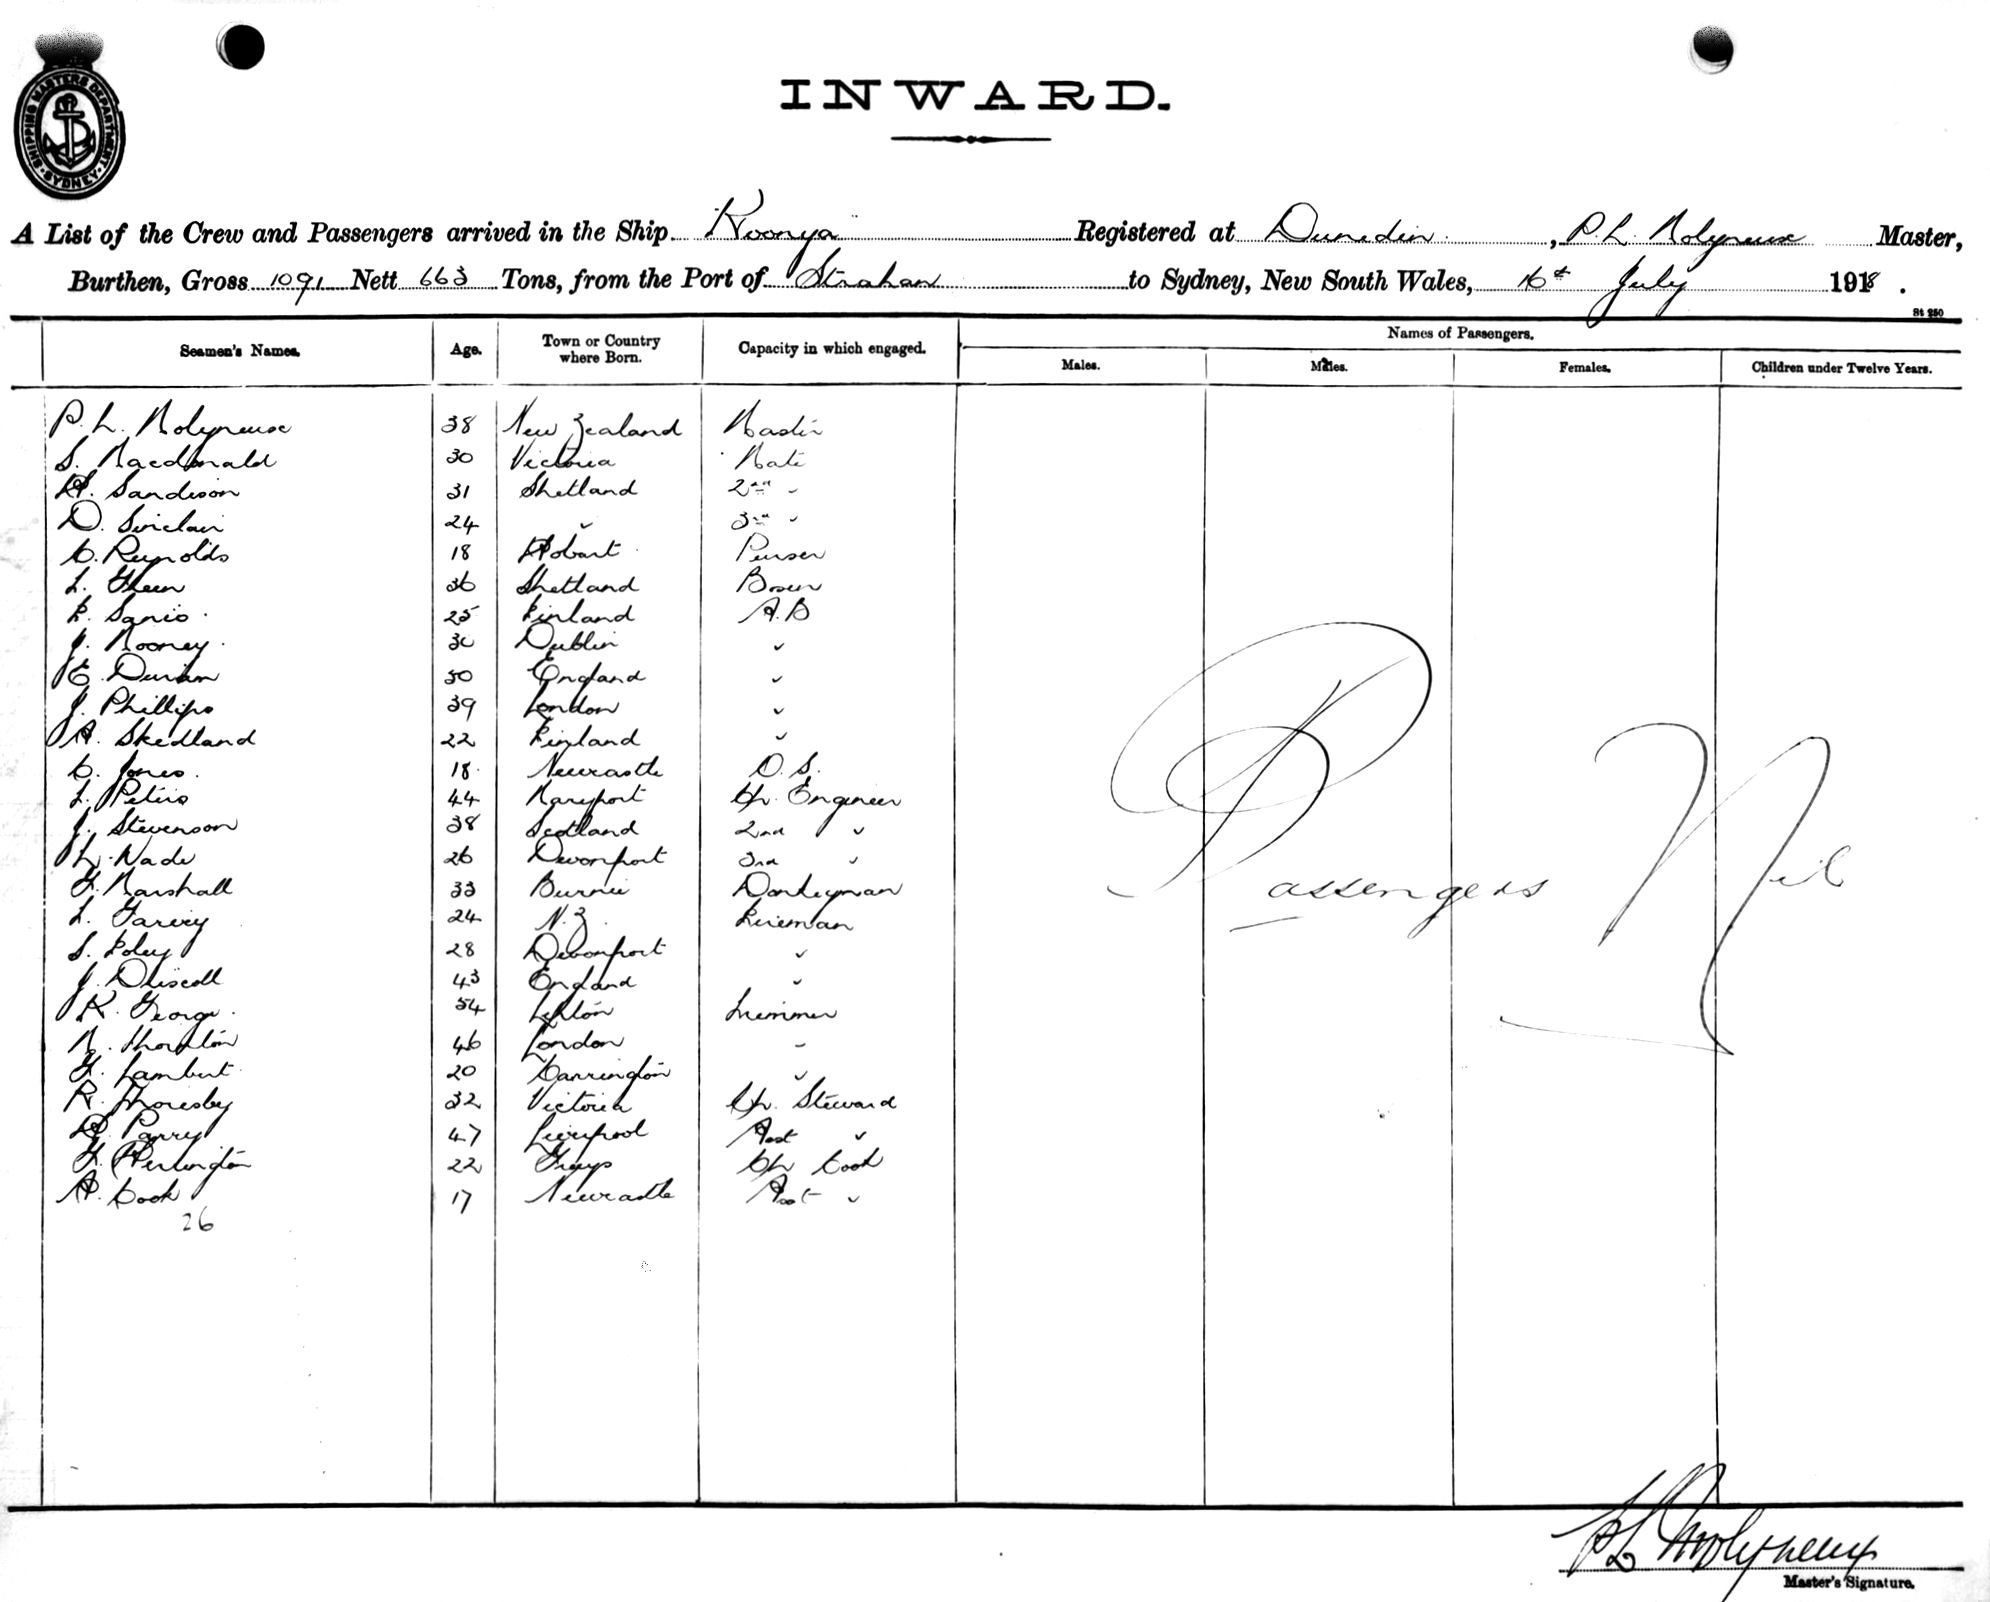 SHIPPING MASTERS DEPARTMENT SYDNEY
INWARD.
A List of the Crew and Passengers arrived in the Ship Koonya Registered at Dunedin, P. L. Molyneux Master,
Burthen, Gross 1091 Nett 663 Tons, from the Port of Strahan to Sydney, New South Wales, 16th July 1918.
St 250
Seamen's Names. Age. Town or Country where Born. Capacity in which engaged. Names of Passengers.
Males. Males. Females. Children under Twelve Years.
P. L. Molyneux 38 New Zealand Master
S. Macdonald 30 Victoria Mate
H. Sandison 31 Shetland 2nd "
D. Sinclair 24 " 3rd "
C. Reynolds 18 Hobart Purser
L. 36 Shetland Bosun
25 Finland A.B
J. Mooney 30 Dublin "
E. 50 England "
J. Phillips 39 London "
A. Skedland 22 Finland "
C. Jones 18 Newcastle O.S.
L. Peters 44 Maryport Ch. Engineer
J. Stevenson 38 Scotland 2nd "
L. Wade 26 Devonport 3rd "
F. Marshall 33 Burnie Donkeyman
L. Garvey 24 N.Z. Fireman
S. Foley 28 Devonport "
J. Driscoll 43 England "
K. George 54 Trimmer
M. Thornton 46 London "
F. Lambert 20 Carrington "
R. Thoresby 32 Victoria Ch. Steward
H. Parry 47 Liverpool Asst "
22 Grays Ch Cook
A. Cook 17 Newcastle Asst "
26
Passengers Nil
P L Molyneux
Master's Signature.